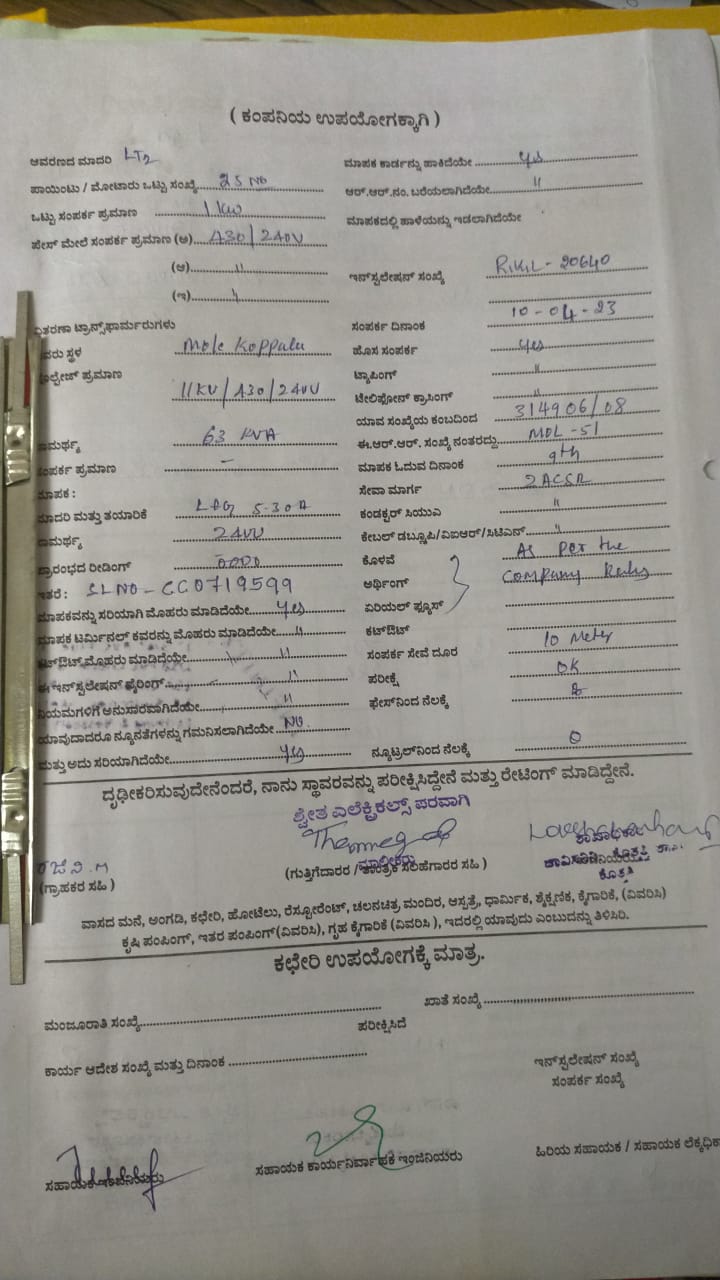 ( ಕಂಪನಿಯ ಉಪಯೋಗಕ್ಕಾಗಿ )
ಆವರಣದ ಮಾದರಿ LT2
ಪಾಯಿಂಟು / ಮೋಟಾರು ಒಟ್ಟು ಸಂಖ್ಯೆ 25 No
ಒಟ್ಟು ಸಂಪರ್ಕ ಪ್ರಮಾಣ 1 kw
ಫೇಸ್ ಮೇಲೆ ಸಂಪರ್ಕ ಪ್ರಮಾಣ (ಅ) 430/240V
(ಆ) "
(ಇ) "
ವಿತರಣಾ ಟ್ರಾನ್ಸ್‌ಫಾರ್ಮರುಗಳು
ಸ್ಥಳ Mole Koppalu
ಪ್ರಮಾಣ 11KV/430/240V
63 KVA
ಸಂಪರ್ಕ ಪ್ರಮಾಣ –
ಮಾಪಕ :
ಮಾದರಿ ಮತ್ತು ತಯಾರಿಕೆ L&G 5-30A
240V
ಪ್ರಾರಂಭದ ರೀಡಿಂಗ್ 0000
ಇತರೆ : SL NO - CC0719599
ಮಾಪಕವನ್ನು ಸರಿಯಾಗಿ ಮೊಹರು ಮಾಡಿದೆಯೇ Yes
ಮಾಪಕ ಟರ್ಮಿನಲ್ ಕವರನ್ನು ಮೊಹರು ಮಾಡಿದೆಯೇ "
ಕಟ್‌ಔಟ್ ಮೊಹರು ಮಾಡಿದೆಯೇ "
ಈ ಇನ್‌ಸ್ಟಲೇಷನ್ ವೈರಿಂಗ್ "
ನಿಯಮಗಳಿಗೆ ಅನುಸಾರವಾಗಿದೆಯೇ "
ಯಾವುದಾದರೂ ನ್ಯೂನತೆಗಳನ್ನು ಗಮನಿಸಲಾಗಿದೆಯೇ No
ಮತ್ತು ಅದು ಸರಿಯಾಗಿದೆಯೇ Yes
ಮಾಪಕ ಕಾರ್ಡನ್ನು ಹಾಕಿದೆಯೇ Yes
ಆರ್.ಆರ್.ನಂ. ಬರೆಯಲಾಗಿದೆಯೇ "
ಮಾಪಕದಲ್ಲಿ ಹಾಳೆಯನ್ನು ಇಡಲಾಗಿದೆಯೇ
ಇನ್‌ಸ್ಟಲೇಷನ್ ಸಂಖ್ಯೆ 20640
ಸಂಪರ್ಕ ದಿನಾಂಕ 10-04-23
ಹೊಸ ಸಂಪರ್ಕ Yes
ಟ್ಯಾಪಿಂಗ್ "
ಟೆಲಿಫೋನ್ ಕ್ರಾಸಿಂಗ್ "
ಯಾವ ಸಂಖ್ಯೆಯ ಕಂಬದಿಂದ 314906/08
ಈ.ಆರ್.ಆರ್. ಸಂಖ್ಯೆ ನಂತರದ್ದು MDL-51
ಮಾಪಕ ಓದುವ ದಿನಾಂಕ 9th
ಸೇವಾ ಮಾರ್ಗ 2ACSR
ಕಂಡಕ್ಟರ್ ಸಿಯುಎ "
ಕೇಬಲ್ ಡಬ್ಲೂಪಿ/ವಿಐಆರ್/ಸಿಟಿಎಸ್ "
ಕೊಳವೆ As per the
ಅರ್ಥಿಂಗ್ Company Rules
ಏರಿಯಲ್ ಫ್ಯೂಸ್
ಕಟ್‌ಔಟ್
ಸಂಪರ್ಕ ಸೇವೆ ದೂರ 10 Meter
ಪರೀಕ್ಷೆ OK
ಫೇಸ್‌ನಿಂದ ನೆಲಕ್ಕೆ
ನ್ಯೂಟ್ರಲ್‌ನಿಂದ ನೆಲಕ್ಕೆ 0
ದೃಢೀಕರಿಸುವುದೇನೆಂದರೆ, ನಾನು ಸ್ಥಾವರವನ್ನು ಪರೀಕ್ಷಿಸಿದ್ದೇನೆ ಮತ್ತು ರೇಟಿಂಗ್ ಮಾಡಿದ್ದೇನೆ.
ಶ್ವೇತ ಎಲೆಕ್ಟ್ರಿಕಲ್ಸ್ ಪರವಾಗಿ
ಮಾಲೀಕರು
(ಗ್ರಾಹಕರ ಸಹಿ )
(ಗುತ್ತಿಗೆದಾರರ / ತಾಂತ್ರಿಕ ಸಲಹೆಗಾರರ ಸಹಿ )
ವಾಸದ ಮನೆ, ಅಂಗಡಿ, ಕಛೇರಿ, ಹೋಟೆಲು, ರೆಸ್ಟೋರೆಂಟ್, ಚಲನಚಿತ್ರ ಮಂದಿರ, ಆಸ್ಪತ್ರೆ, ಧಾರ್ಮಿಕ, ಶೈಕ್ಷಣಿಕ, ಕೈಗಾರಿಕೆ, (ವಿವರಿಸಿ)
ಕೃಷಿ ಪಂಪಿಂಗ್, ಇತರ ಪಂಪಿಂಗ್(ವಿವರಿಸಿ), ಗೃಹ ಕೈಗಾರಿಕೆ (ವಿವರಿಸಿ ), ಇದರಲ್ಲಿ ಯಾವುದು ಎಂಬುದನ್ನು ತಿಳಿಸಿರಿ.
ಕಛೇರಿ ಉಪಯೋಗಕ್ಕೆ ಮಾತ್ರ.
ಮಂಜೂರಾತಿ ಸಂಖ್ಯೆ
ಖಾತೆ ಸಂಖ್ಯೆ
ಪರೀಕ್ಷಿಸಿದೆ
ಕಾರ್ಯ ಆದೇಶ ಸಂಖ್ಯೆ ಮತ್ತು ದಿನಾಂಕ
ಇನ್‌ಸ್ಟಲೇಷನ್ ಸಂಖ್ಯೆ
ಸಂಪರ್ಕ ಸಂಖ್ಯೆ
ಸಹಾಯಕ ಇಂಜಿನಿಯರು
ಸಹಾಯಕ ಕಾರ್ಯನಿರ್ವಾಹಕ ಇಂಜಿನಿಯರು
ಹಿರಿಯ ಸಹಾಯಕ / ಸಹಾಯಕ